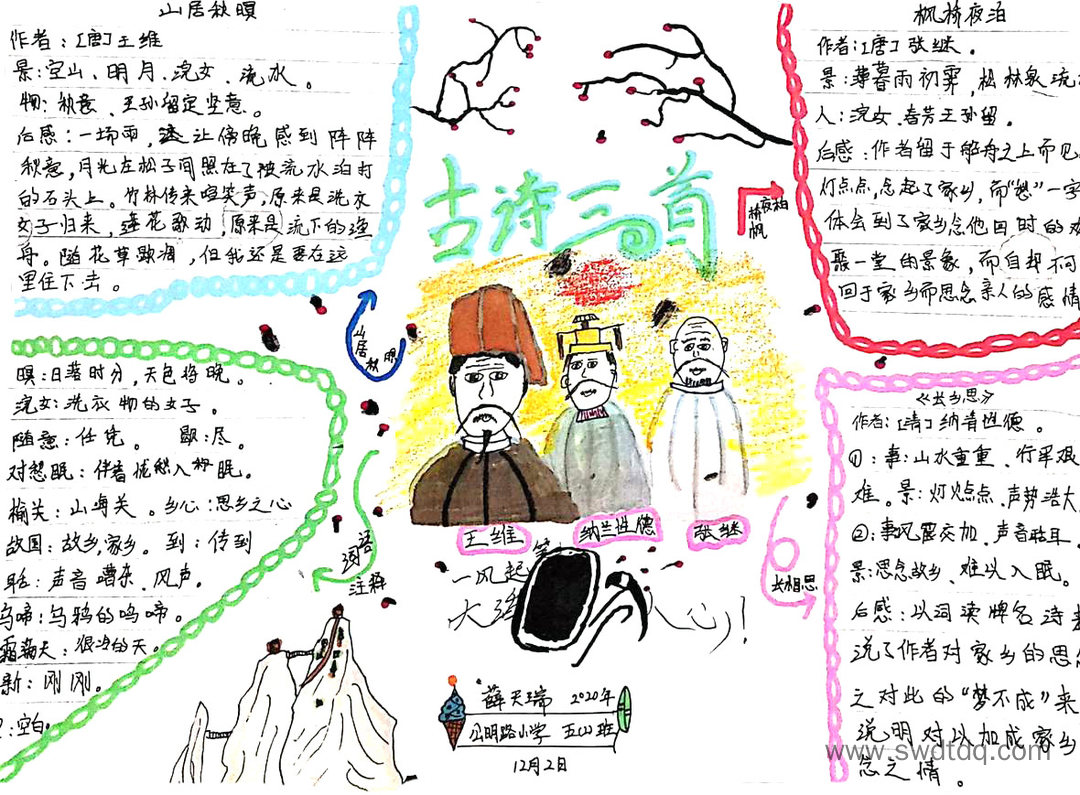 山居秋暝
作者：[唐]王维
景：空山、明月、浣女、流水。
物：秋意、王孙留定坚意。
后感：一场雨，让傍晚感到阵阵
秋意，月光左松子间照在了被流水泊打
的石头上。竹林传来喧笑声，原来是洗衣
女子归来，莲花歌动，原来是流下的渔
舟。随花草歇凋，但我还是要在这
里住下去。
暝：日落时分，天色将晚。
浣女：洗衣物的女子。
随意：任凭。 歇：尽。
对愁眠：伴着忧愁入眠。
榆关：山海关。乡心：思乡之心
故国：故乡，家乡。到：传到
声音嘈杂、风声。
乌啼：乌鸦的鸣啼。
霜满天：很冷的天。
新：刚刚。
：空白。
古诗三首
桥夜泊
枫
山居秋暝
王维
纳兰性德
张继
词语
注释
长相思
一风起
大
心！
薛天瑞 2020年
公明路小学 五(1)班
12月2日
枫桥夜泊
作者：[唐]张继。
景：薄暮雨初霁，松林泉流
人：浣女、春芳王孙留。
后感：作者留于船舟之上而见
灯点点，念起了家乡，而“愁”一字
体会到了家乡念他回时的欢
聚一堂的景象，而自却不
回于家乡而思念亲人的感情
《长乡思》
作者：[清]纳肯性德。
①：事：山水重重、行军艰
难。景：灯火点点、声势浩大
②：事风露交加、声音聒耳。
景：思念故乡、难以入眠。
后感：以词读牌名诗
说了作者对家乡的思念
之对此的“梦不成”来
说明对以加成家乡
念之情。
www.swdtdq.com